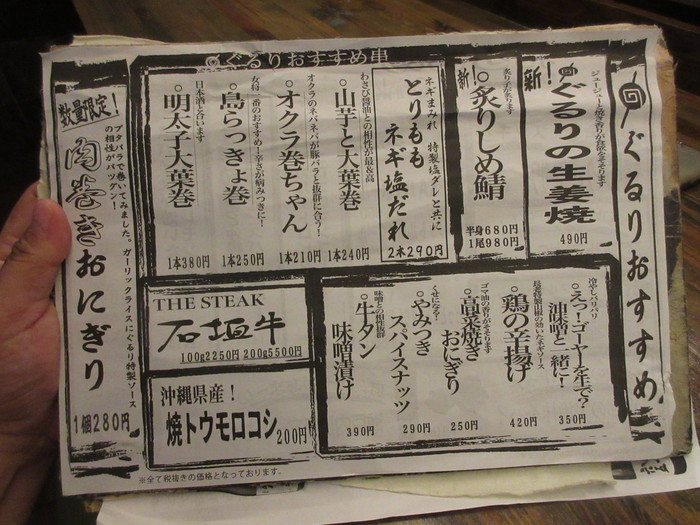 ぐるりおすすめ
新!
ジュージューと焼き香りが食欲をそそります
ぐるりの生姜焼
490円
新!
炙りしめ鯖
半身680円
1尾980円
◎ぐるりおすすめ串
ネギまみれ 特製塩ダレと共に
とりもも
ネギ塩だれ
2本290円
わさび醤油との相性が最&高
○山芋と大葉巻
1本240円
オクラのネバネバが豚バラと抜群に合う!
○オクラ巻ちゃん
1本210円
女将一番のおすすめ!辛さが病みつきに!
○島らっきょ巻
1本250円
日本酒と合います
○明太子大葉巻
1本380円
冷やしパリパリ
○えっ!ゴーヤーを生で?
油味噌と一緒に!
350円
長老特製山椒の効いたネギソース
○鶏の辛揚げ
420円
ゴマ油の香りがそそります
○高菜焼き
おにぎり
250円
くせになる!
○やみつき
スパイスナッツ
290円
味噌との相性抜群
○牛タン
味噌漬け
390円
THE STEAK
石垣牛
100g2250円 200g5500円
沖縄県産!
焼トウモロコシ200円
数量限定!
ブタバラで巻いてみました。ガーリックライスにぐるり特製ソース
の相性がバツグン!
肉巻きおにぎり
1個280円
※全て税抜きの価格となっております。